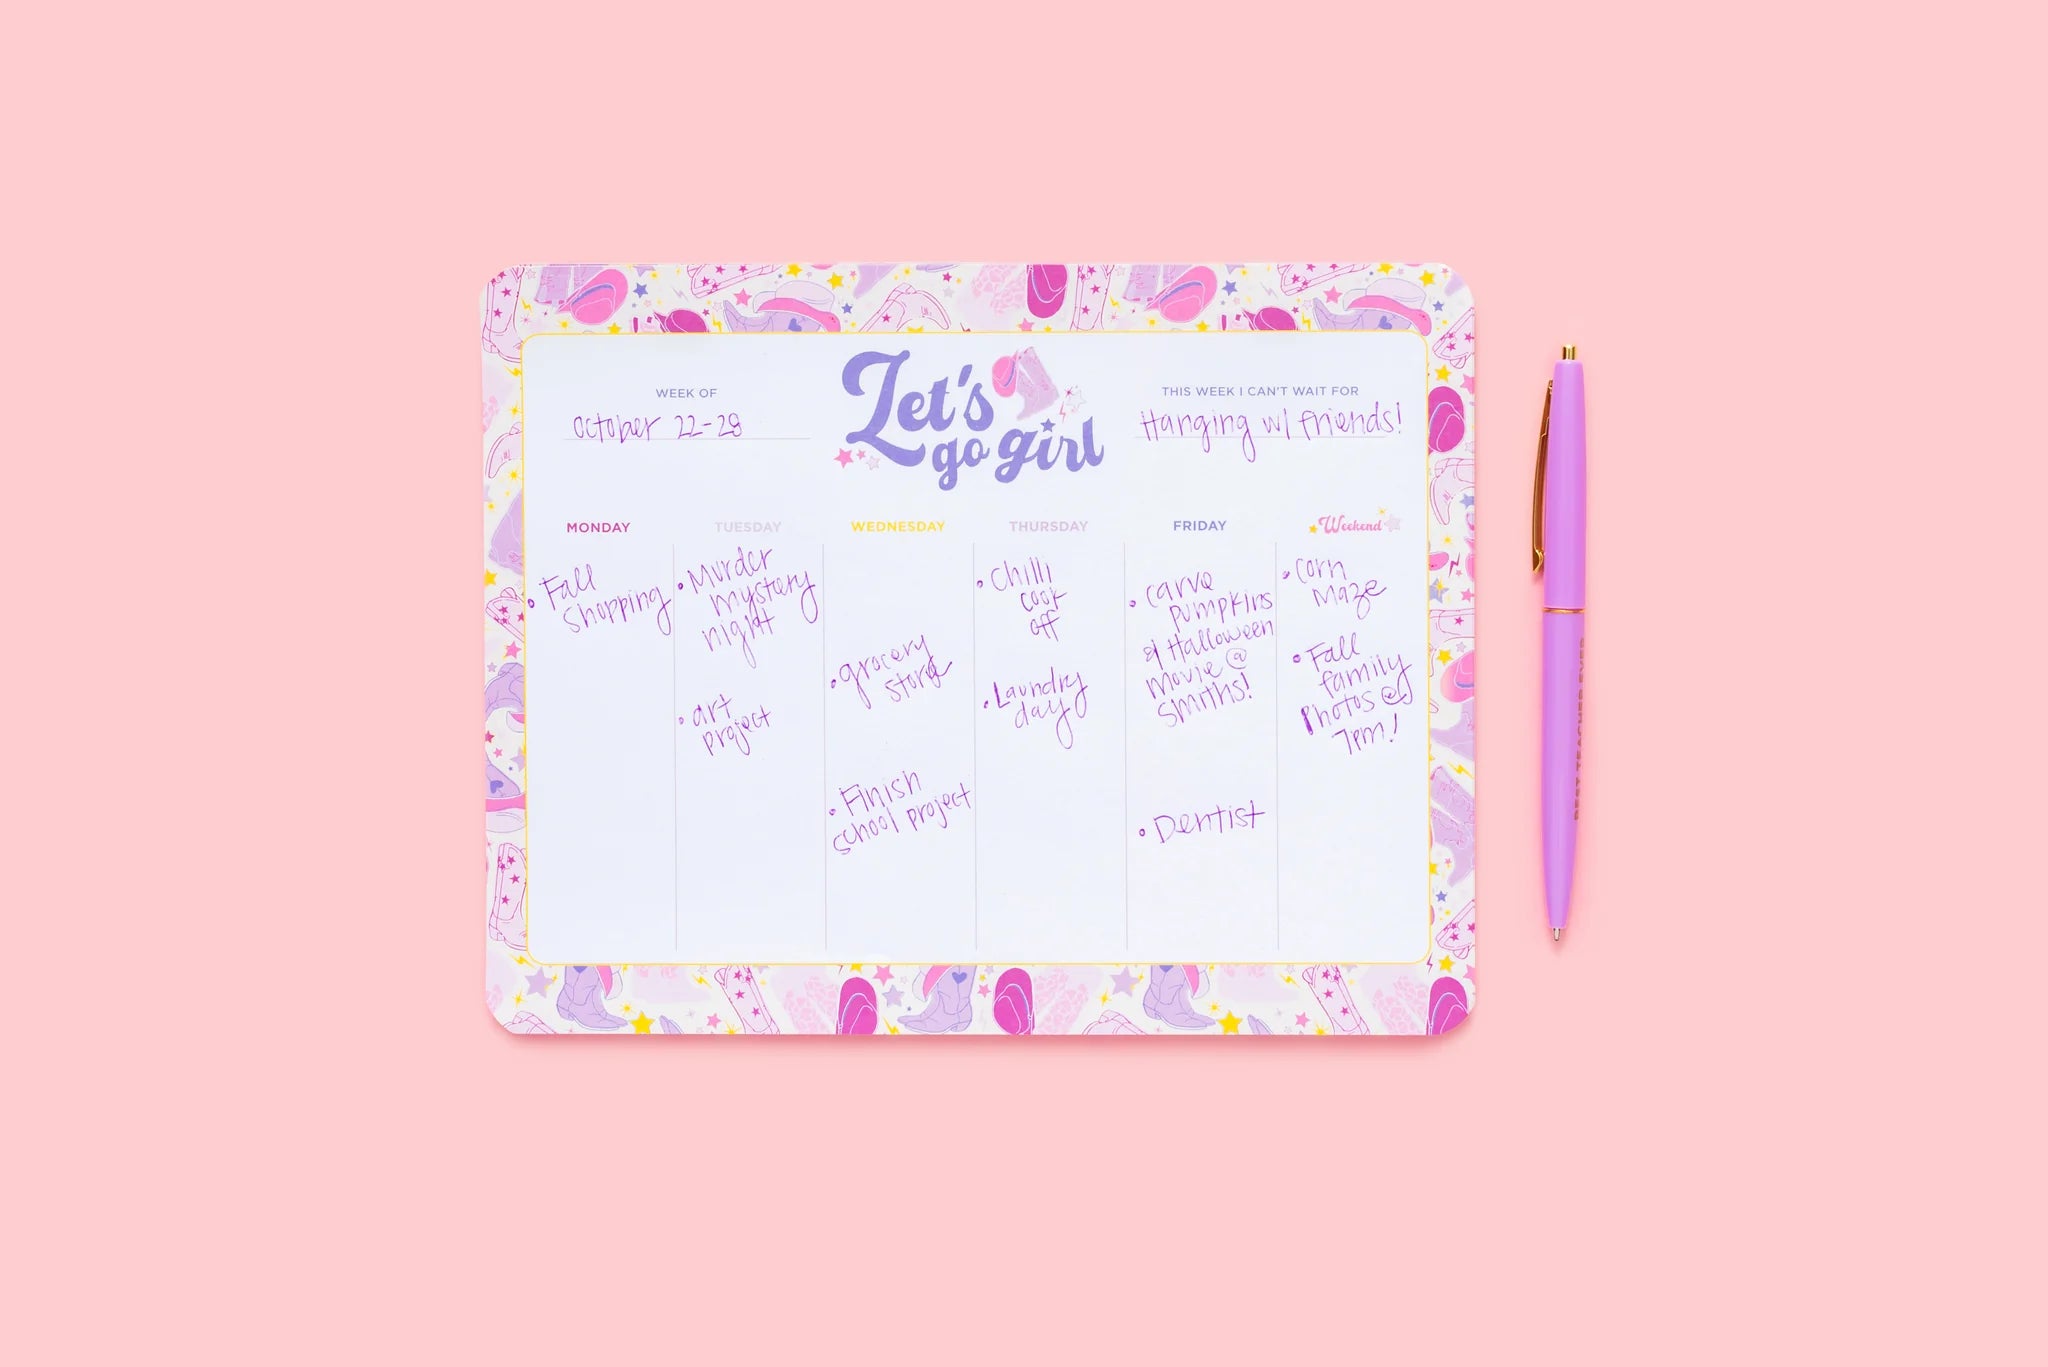 WEEK OF
October 22-28
Let's
go girl
THIS WEEK I CAN'T WAIT FOR
Hanging w/ friends!
MONDAY
• Fall
Shopping
TUESDAY
• Murder
mystery
night
• art
project
WEDNESDAY
• grocery
store
• Finish
school project
THURSDAY
• Chilli
cook
off
• Laundry
day
FRIDAY
• carve
pumpkins
& Halloween
movie @
Smiths!
• Dentist
Weekend
• corn
maze
• Fall
family
Photos @
7pm!
BEST TEACHER EVER